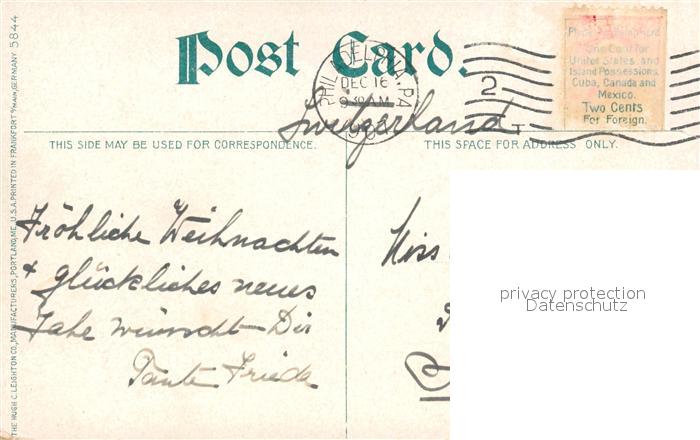 Post Card.
PHILADELPHIA, PA.
DEC 16
9 30 AM
2
Place
One Cent for
United States and
Island Possessions,
Cuba, Canada and
Mexico.
Two Cents
For Foreign.
Switzerland
THIS SIDE MAY BE USED FOR CORRESPONDENCE.
THIS SPACE FOR ADDRESS ONLY.
Fröhliche Weihnachten
+ glückliches neues
Jahr wünscht Dir
Tante Frieda
Miss
privacy protection
Datenschutz
THE HUGH C. LEIGHTON CO., MANUFACTURERS, PORTLAND, ME., U.S.A. PRINTED IN FRANKFORT a/MAIN, GERMANY 5844